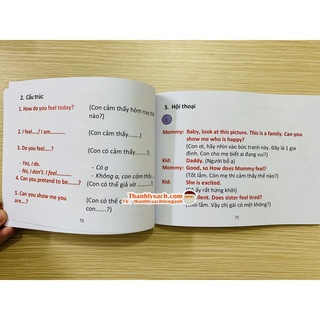 2. Cấu trúc
1. How do you feel today?
(Con cảm thấy hôm nay thế
nào?)
2. I feel..../ I am...........
(Con cảm thấy.........)
3. Do you feel.....?
(Con có cảm thấy........?)
- Yes, I do.
- Có ạ
- No, I don't. I feel............
- Không ạ, con cảm thấy...
4. Can you pretend to be......?
(Con có thể giả vờ
5. Can you show me you
are....?
(Con có thể
con......?)
71
3. Hội thoại
1
Mommy: Baby, look at this picture. This is a family. Can you
show me who is happy?
(Con ơi, hãy nhìn vào bức tranh này. Đây là 1 gia
đình. Con cho mẹ biết ai đang vui?)
Kid: Daddy. (Người bố ạ)
Mommy: Good, so How does Mommy feel?
(Tốt lắm. Con mẹ thì cảm thấy thế nào?)
Kid: She is excited.
ấy rất hứng khởi)
Does sister feel tired?
lắm. Vậy chị gái có mệt không?)
72
Thanhlysach.com